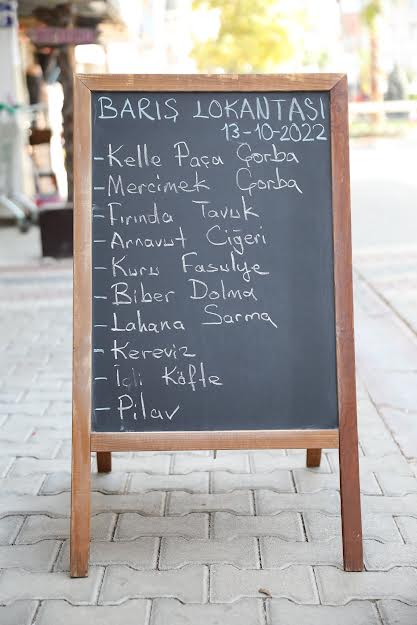 BARIŞ LOKANTASI
13-10-2022
- Kelle Paça Çorba
- Mercimek Çorba
- Fırında Tavuk
- Arnavut Ciğeri
- Kuru Fasulye
- Biber Dolma
- Lahana Sarma
- Kereviz
- İçli Köfte
- Pilav